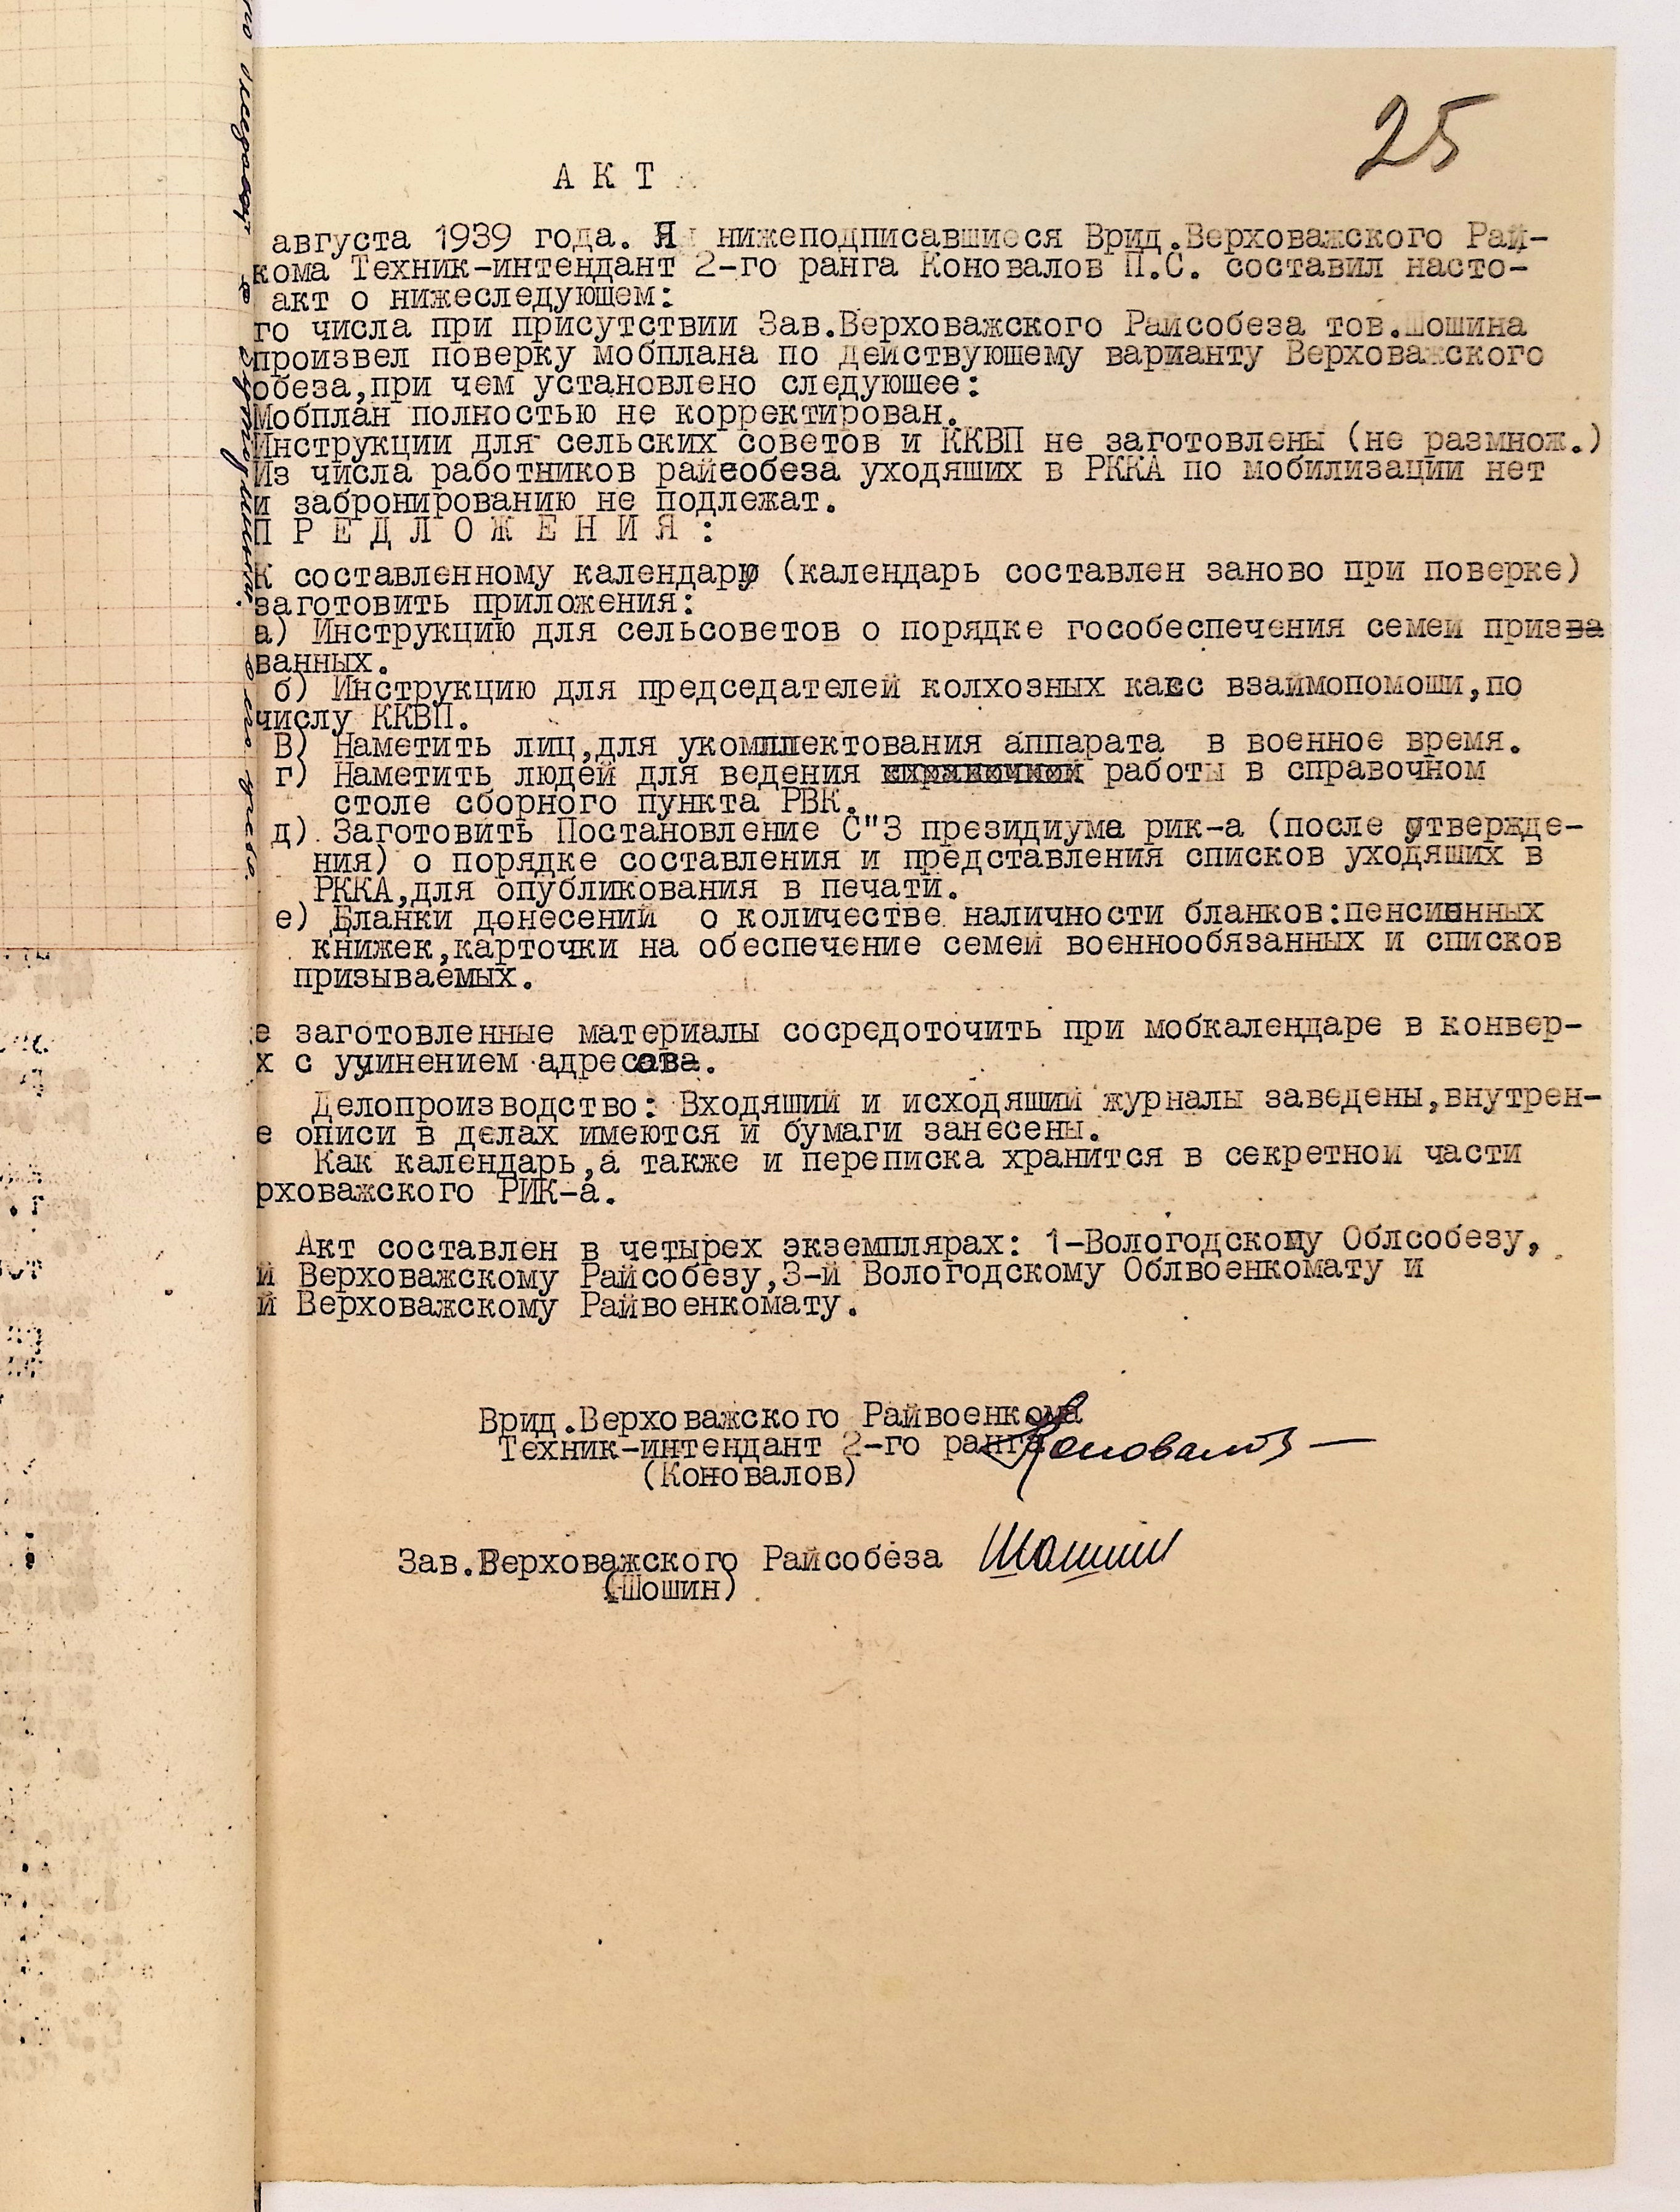 25
А К Т
августа 1939 года. Я нижеподписавшиеся Врид.Верховажского Рай-
кома Техник-интендант 2-го ранга Коновалов П.С. составил насто-
акт о нижеследующем:
го числа при присутствии Зав.Верховажского Райсобеза тов.Шошина
произвел поверку мобплана по действующему варианту Верховажского
обеза,при чем установлено следующее:
Мобплан полностью не корректирован.
Инструкции для сельских советов и ККВП не заготовлены (не размнож.)
Из числа работников райсобеза уходящих в РККА по мобилизации нет
и забронированию не подлежат.
П Р Е Д Л О Ж Е Н И Я :
К составленному календарю (календарь составлен заново при поверке)
заготовить приложения:
а) Инструкцию для сельсоветов о порядке гособеспечения семей призва
ванных.
б) Инструкцию для председателей колхозных касс взаимопомощи,по
числу ККВП.
В) Наметить лиц,для укомплектования аппарата в военное время.
г) Наметить людей для ведения работы в справочном
столе сборного пункта РВК.
д) Заготовить Постановление С"З президиума рик-а (после утвержде-
ния) о порядке составления и представления списков уходящих в
РККА,для опубликования в печати.
е) Бланки донесений о количестве наличности бланков:пенсионных
книжек,карточки на обеспечение семей военнообязанных и списков
призываемых.
е заготовленные материалы сосредоточить при мобкалендаре в конвер-
х с учинением адресата.
Делопроизводство: Входящий и исходящий журналы заведены,внутрен-
е описи в делах имеются и бумаги занесены.
Как календарь,а также и переписка хранится в секретной части
рховажского РИК-а.
Акт составлен в четырех экземплярах: 1-Вологодскому Облсобезу,
й Верховажскому Райсобезу,3-й Вологодскому Облвоенкомату и
й Верховажскому Райвоенкомату.
Врид.Верховажского Райвоенкома
Техник-интендант 2-го ранга Коновалов
(Коновалов)
Зав.Верховажского Райсобеза Шошин
(Шошин)